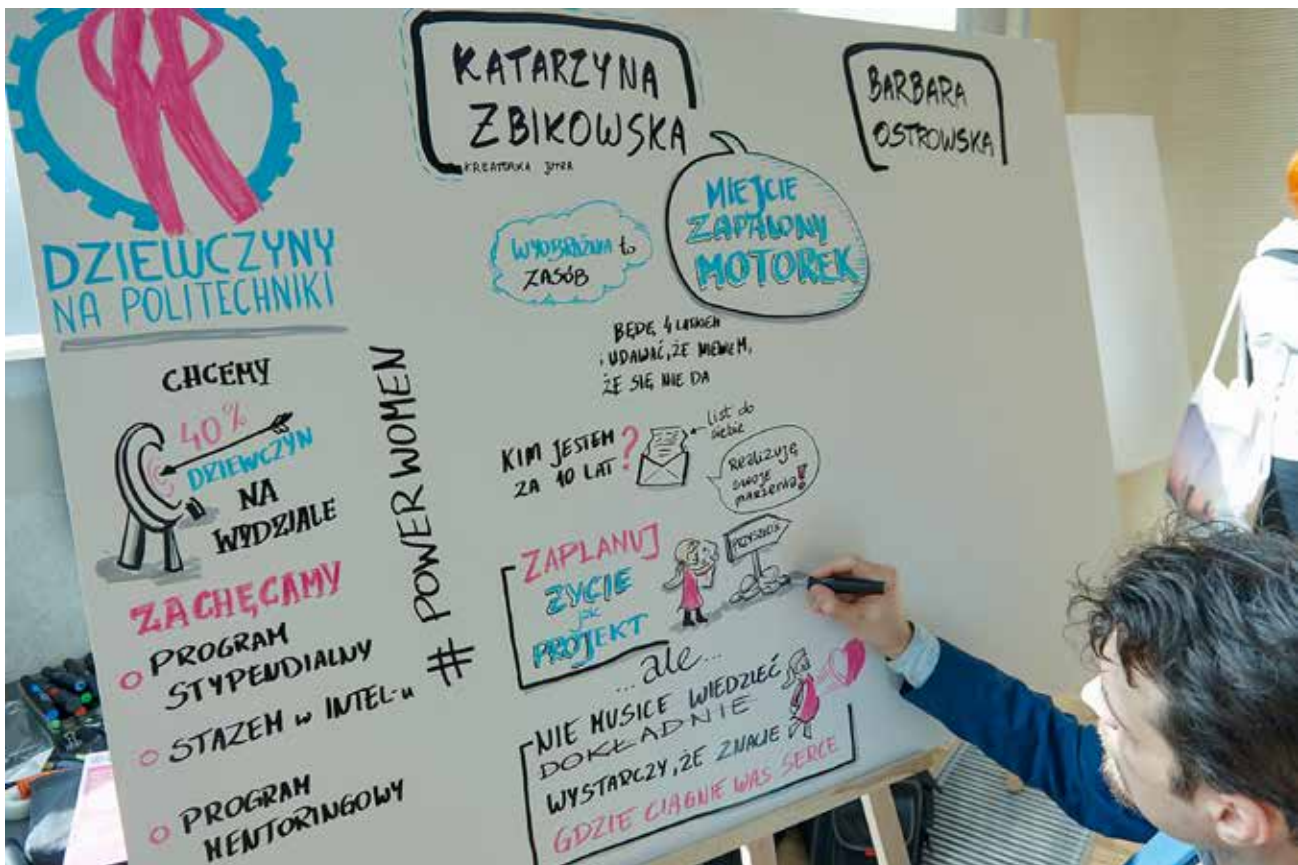 DZIEWCZYNY
NA POLITECHNIKI
CHCEMY
40%
DZIEWCZYN
NA
WYDZIALE
ZACHĘCAMY
PROGRAM
STYPENDIALNY
STAZEM w INTEL-u
PROGRAM
MENTORINGOWY
#POWERWOMEN
KATARZYNA
ZBIKOWSKA
JUTRA
MIEJCIE
ZAPALONY
MOTOREK
WYOBRAŹNIA to
ZASÓB
BĘDĘ 4 LATKIEM
i UDAWAĆ, ŻE NIEWIEM,
ŻE SIĘ NIE DA
KIM JESTEM
ZA 10 LAT?
list do
siebie
Realizuję
swoje
marzenia!
ZAPLANUJ
ŻYCIE
jak
PROJEKT
PRZYSZŁOŚĆ
...ale...
NIE MUSICE WIEDZIEĆ
DOKŁADNIE
WYSTARCZY, ŻE ZNACIE
GDZIE CIĄGNIE WAS SERCE
BARBARA
OSTROWSKA